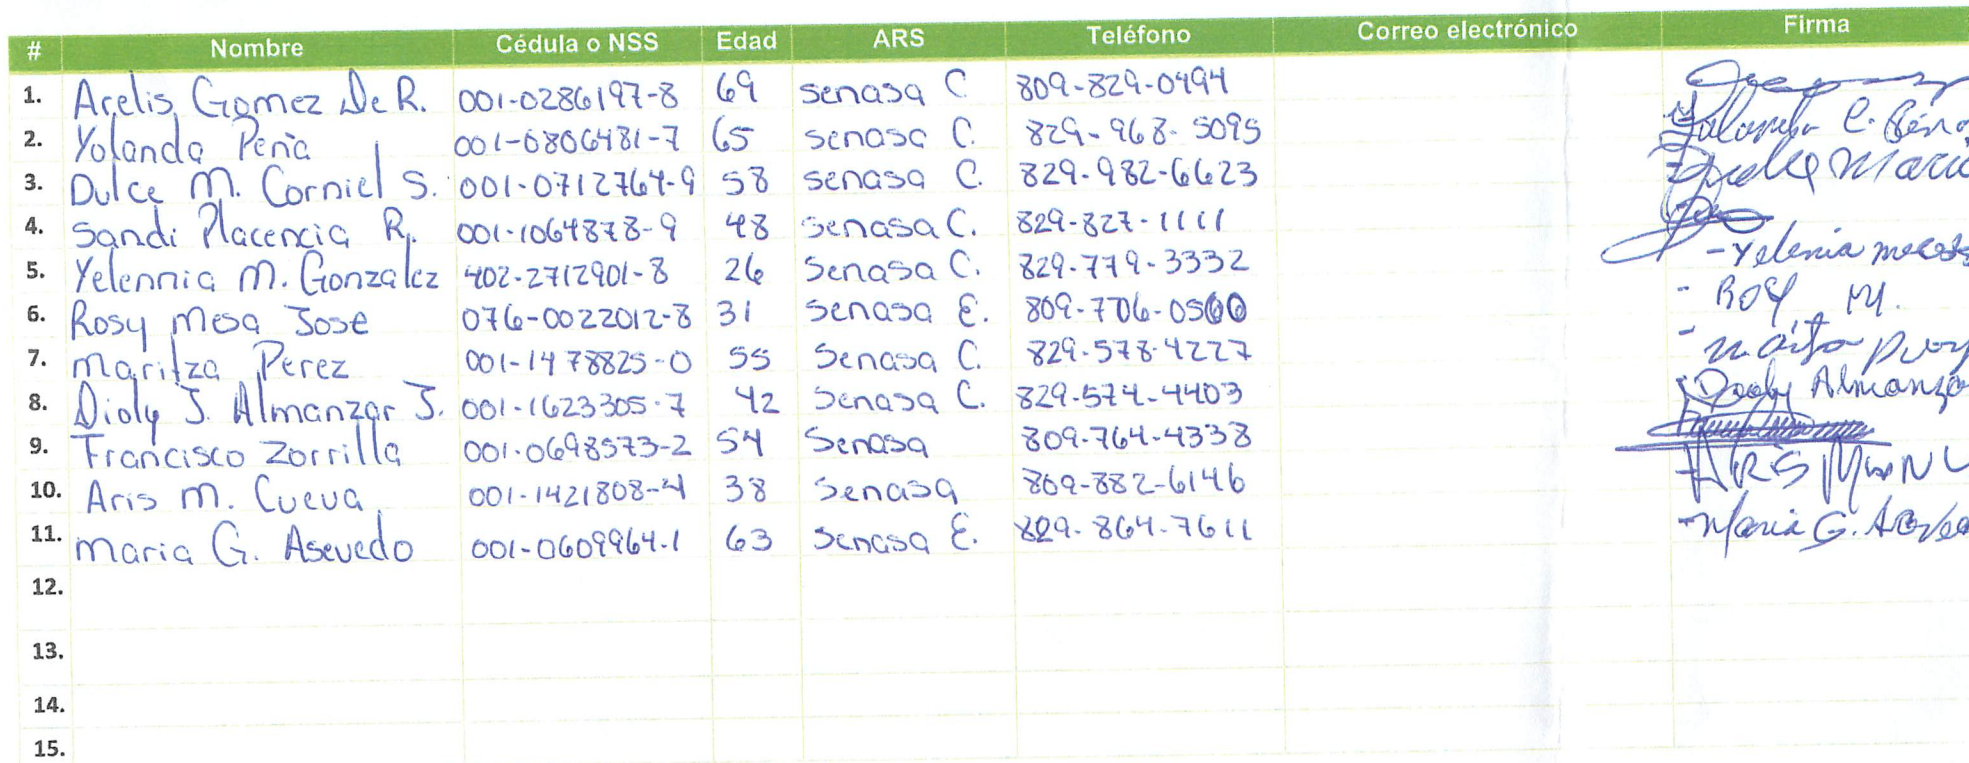 # Nombre Cédula o NSS Edad ARS Teléfono Correo electrónico Firma
1. Arelis Gomez De R. 001-0286197-8 69 senasa C 809-829-0494
2. Yolanda Peña 001-0806481-7 65 senasa C. 829-968-5095 Yolanda C. Péna
3. Dulce M. Corniel S. 001-0712764-9 58 senasa C. 829-982-6623 Dulce Maria
4. Sandi Placencia R. 001-1064878-9 48 senasa C. 829-827-1111
5. Yelennia M. Gonzalez 402-2712901-8 26 Senasa C. 829-779-3332 - Yelenia
6. Rosy Mesa Jose 076-0022012-8 31 Senasa E. 809-706-0500 - Rosy M.
7. Maritza Perez 001-1478825-0 55 Senasa C. 829-578-4227
8. Dioly J. Almanzar J. 001-1623305-7 42 Senasa C. 829-574-4403 Dioly Almanza
9. Francisco Zorrilla 001-0698573-2 54 Senasa 809-764-4338
10. Aris M. Cueva 001-1421808-4 38 Senasa 809-882-6146 ARIS
11. Maria G. Asevedo 001-0609964-1 63 Senasa E. 829-864-7611 - Maria G.
12.
13.
14.
15.